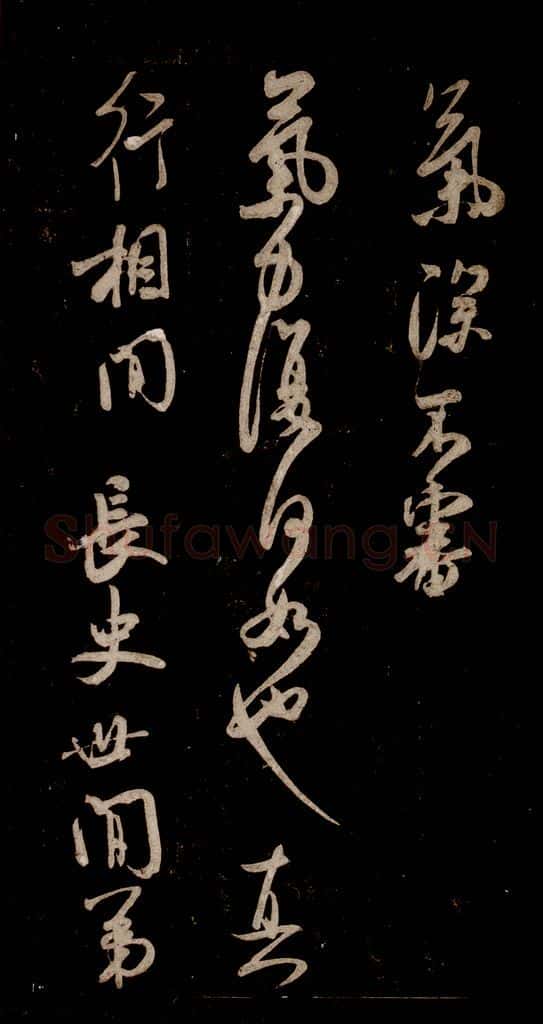 氣深不審
氣力復何如也真
行相間長史世間第
Shufawang.CN